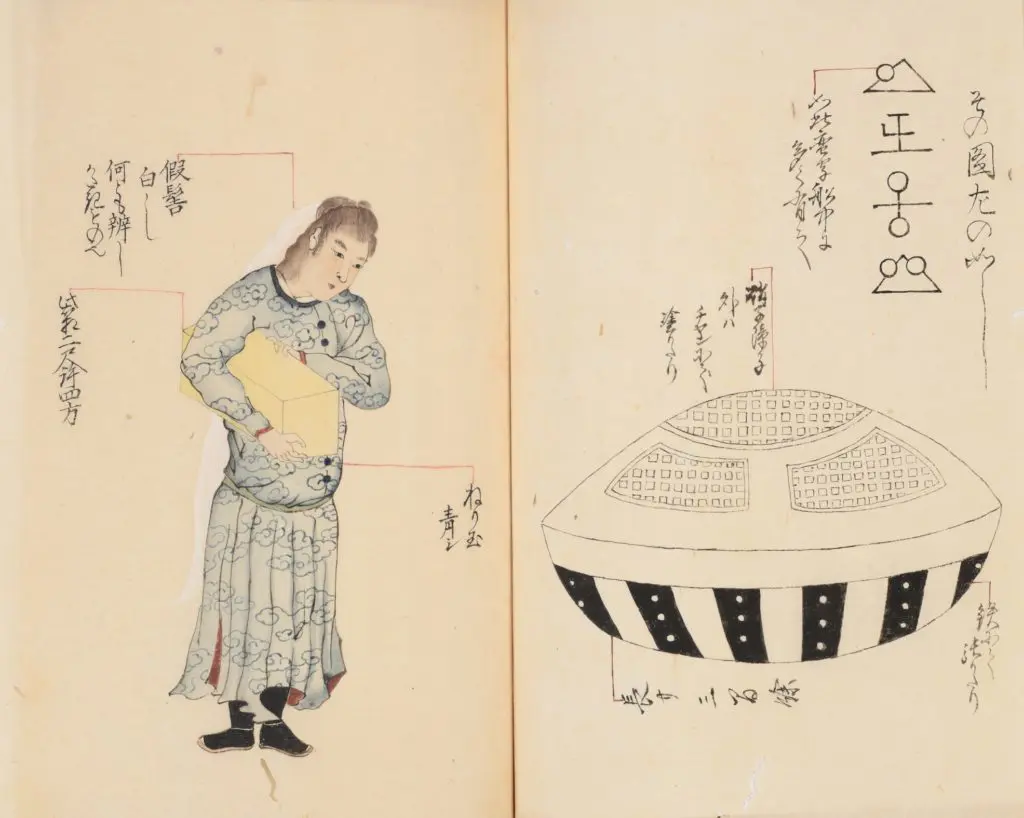 その圖左の如し
如此蛮字船中に
多く有之
硝子障子
外ハ
チヤンにて
塗りたり
鉄にて
張りたり
長サ三間餘
假髻
白し
何とも辨し
ねり玉
青シ
此箱二尺許四方